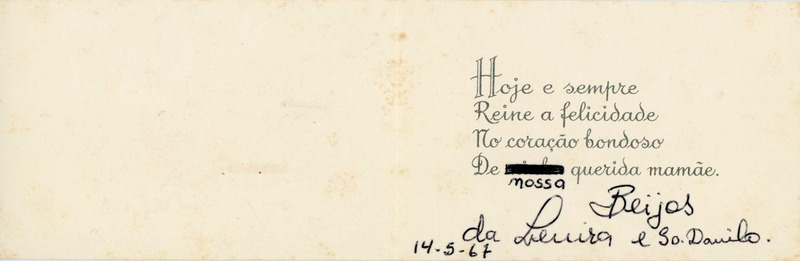 Hoje e sempre
Reine a felicidade
No coração bondoso
De querida mamãe.
nossa
Beijos
da Lenira e Danilo.
14-5-67